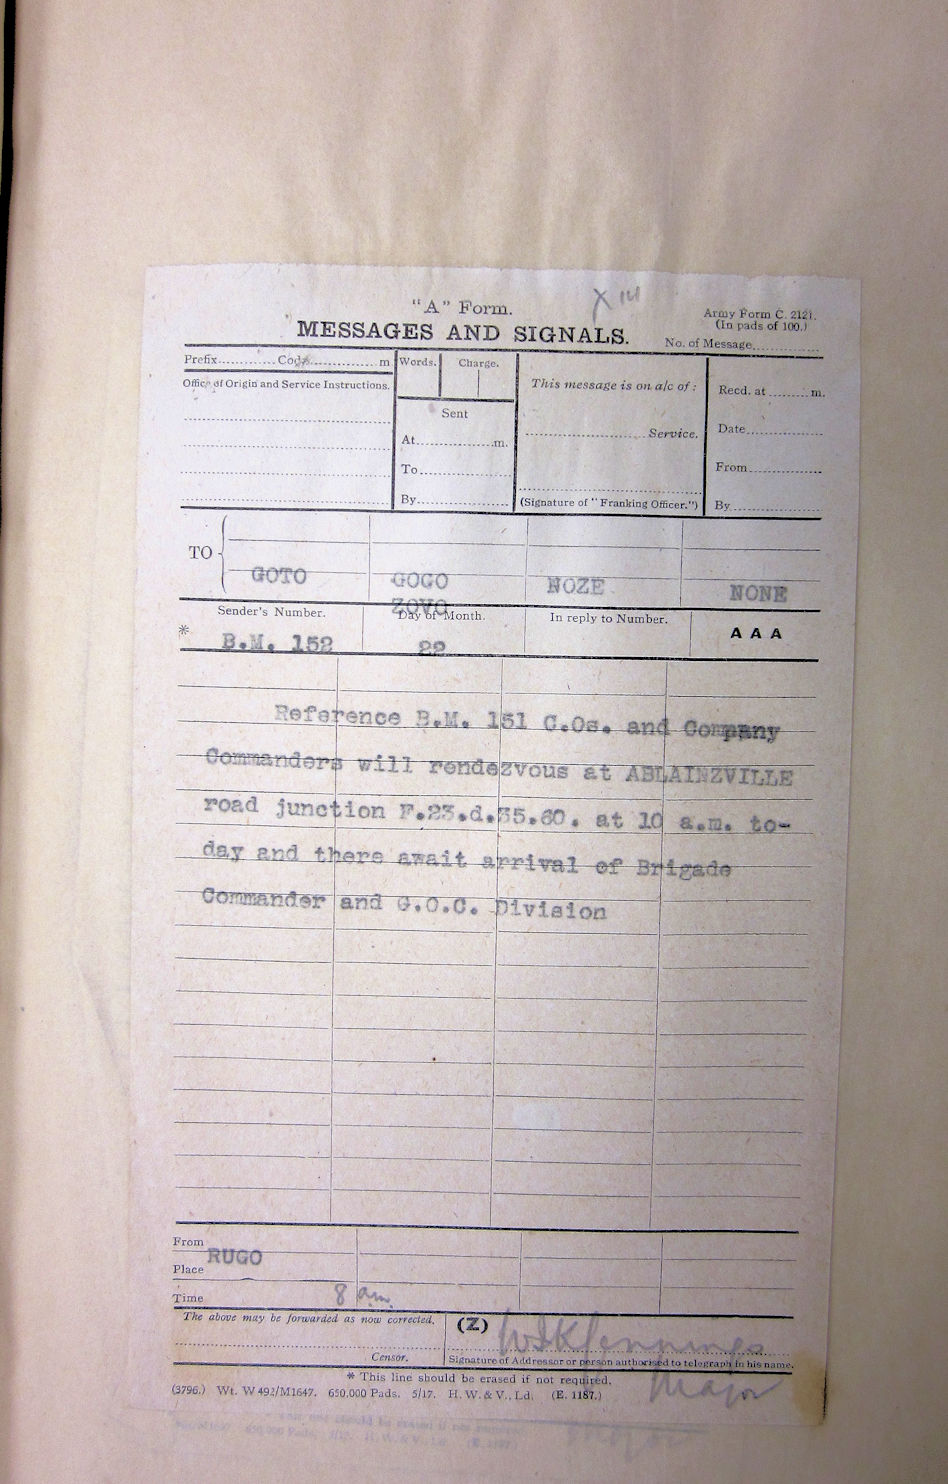 "A" Form.
X 141
MESSAGES AND SIGNALS.
Army Form C. 2121.
(In pads of 100.)
No. of Message
Prefix Code m
Words. Charge.
This message is on a/c of :
Recd. at m.
Office of Origin and Service Instructions.
Sent
Service.
Date
At m.
To
From
By
(Signature of "Franking Officer.")
By
TO
GOTO GOGO NOZE NONE
ZOVO
Sender's Number. Day of Month. In reply to Number. AAA
* B.M. 152 22
Reference B.M. 151 C.Os. and Company
Commanders will rendezvous at ABLAINZVILLE
road junction F.23.d.35.60. at 10 a.m. to-
day and there await arrival of Brigade
Commander and G.O.C. Division
From
RUGO
Place
Time 8 am.
The above may be forwarded as now corrected.
(Z)
Jennings
Censor.
Signature of Addressor or person authorised to telegraph in his name.
* This line should be erased if not required.
Major
(3796.) Wt. W 492/M1647. 650,000 Pads. 5/17. H. W. & V., Ld. (E. 1187.)